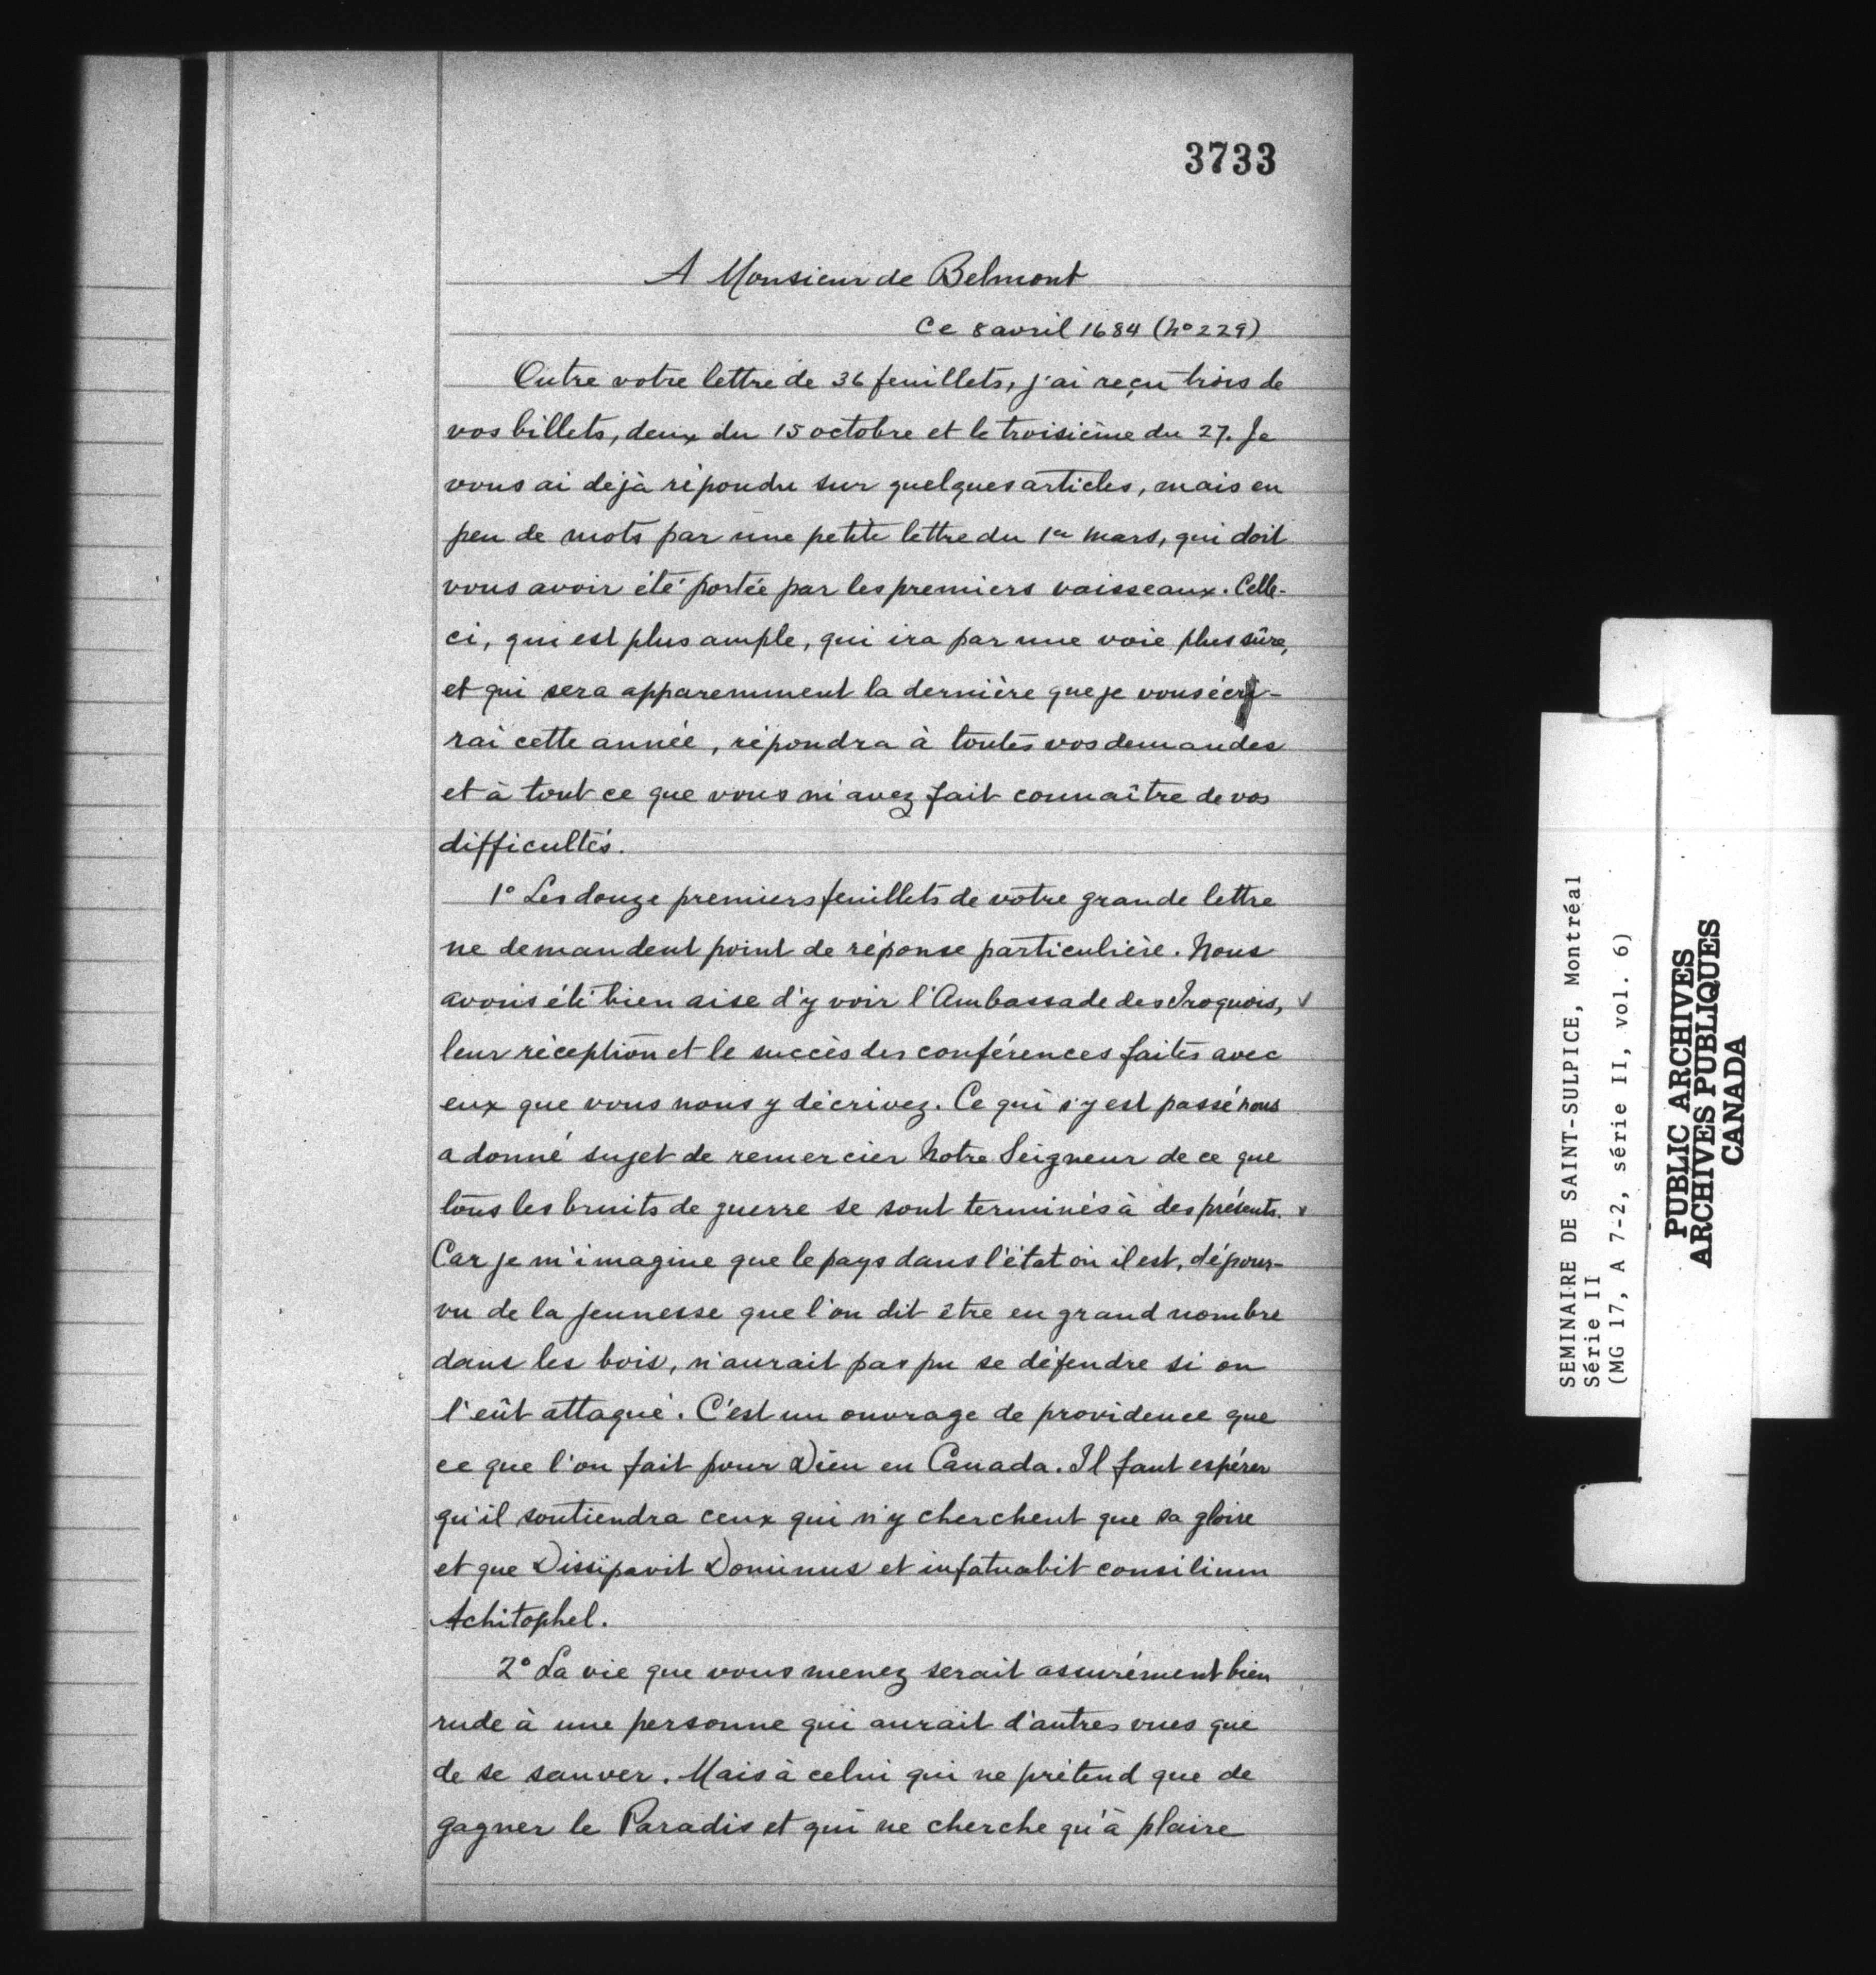 3733
A Monsieur de Belmont
Ce 8 avril 1684 (No 229)
Outre votre lettre de 36 feuillets, j'ai reçu trois de
vos billets, deux du 15 octobre et le troisième du 27. Je
vous ai déjà répondu sur quelques articles, mais en
peu de mots par une petite lettre du 1er mars, qui doit
vous avoir été portée par les premiers vaisseaux. Celle-
ci, qui est plus ample, qui ira par une voie plus sûre,
et qui sera apparemment la dernière que je vous écri-
rai cette année, répondra à toutes vos demandes
et à tout ce que vous m'avez fait connaître de vos
difficultés.
1° Les douze premiers feuillets de votre grande lettre
ne demandent point de réponse particulière. Nous
avons été bien aise d'y voir l'Ambassade des Iroquois, ✓
leur réception et le succès des conférences faites avec
eux que vous nous y décrivez. Ce qui s'y est passé nous
a donné sujet de remercier Notre Seigneur de ce que
tous les bruits de guerre se sont terminés à des présents.
Car je m'imagine que le pays dans l'état où il est, dépour-
vu de la jeunesse que l'on dit être en grand nombre
dans les bois, n'aurait pas pu se défendre si on
l'eût attaqué. C'est un ouvrage de providence que
ce que l'on fait pour Dieu en Canada. Il faut espérer
qu'il soutiendra ceux qui n'y cherchent que sa gloire
et que Dissipavit Dominus et infatuabit consilium
Achitophel.
2° La vie que vous menez serait assurément bien
rude à une personne qui aurait d'autres vues que
de se sauver. Mais à celui qui ne prétend que de
gagner le Paradis et qui ne cherche qu'à plaire
SEMINAIRE DE SAINT-SULPICE, Montréal
Série II
(MG 17, A 7-2, série II, vol. 6)
PUBLIC ARCHIVES
ARCHIVES PUBLIQUES
CANADA